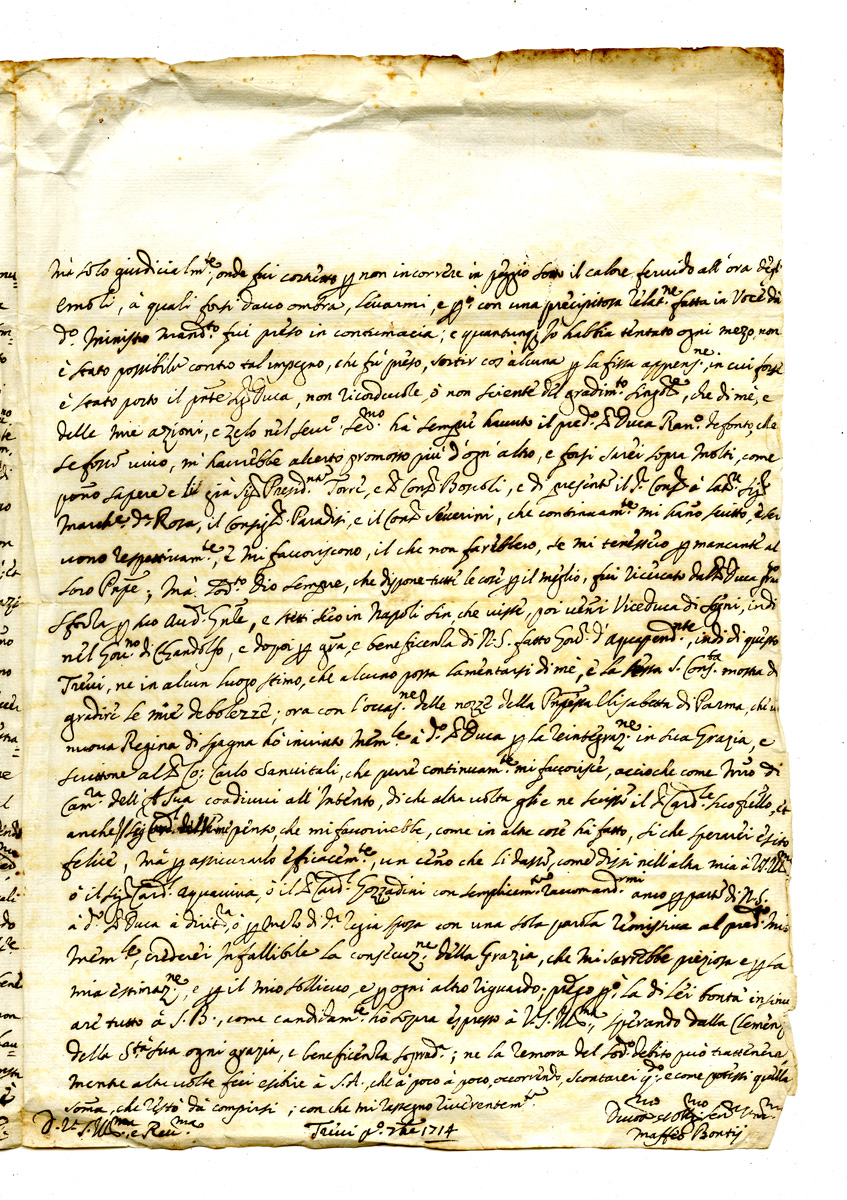 mà solo giudicial.mte, onde fui costretto p non incorrere in peggio sotto il calore fervido all'ora degl'
emoli, à quali forsi davo ombra, levarmi, e p.o con una precipitosa relat.ne fatta in Voce da
d.o Ministro Mand.to fui preso in contumacia; e quantunq; Io habbia tentato ogni mezo, non
è stato possibile contro tal impegno, che fù preso, sortir cos'alcuna p la fissa appens.ne, in cui forse
è stato posto il pnte Sig. Duca, non ricordevole, ò non sciente del gradim.to sing.re, che di mè, e
delle mie azioni, e zelo nel serv.o Ser.mo hà sempre havuto il pred.o S. Duca Ran.o defonto, che
se fosse vivo, m'havrebbe al certo promosso più d'ogn'altro, e forsi sarei sopra molti, come
pono sapere e li già Sig. Presid.nte Torre, e S. Cons. Boscoli, e di presente il S. Cons.
March.e d.a Rosa, il Consig. Paradisi, e il Cons. Severini, che continuam.te mi hano scritto, e scri
vono respettivam.te, e mi favoriscono, il che non farebbero, se mi tenessero p mancante al
loro Pnpe; Mà Iddio sempre, che dispone tutte le cose p il meglio, fui ricercato dal S. Duca
Sforza p suo Aud. Gnle, e stetti seco in Napoli sin, che visse, poi venni Viceduca di Segni, indi
nel Gov.no di Gandolfo, e dopoi p gra, e beneficenza di N.S. fatto Gov.r d'Aquapend.nte, indi di questo
Trevi, ne in alcun luogo stimo, che alcuno possa lamentarsi di mè, e la stessa S. Cons.ta mostra di
gradire le mie debolezze; ora con l'occas.ne delle nozze della Pnpessa Elisabetta di Parma, che è
nuova Regina di Spagna hò inviato Mem.le à d.o S. Duca p la reintegraz.ne in sua Grazia, e
scrittone al S. Co: Carlo Sanvitali, che pure continuam.te mi favorisce, acciochè come Mro di
Cam.ra dell'A Sua coadiuvi all'Intento, di che altra volta glie ne scrisse il S. Card.le Sco
anche penso, che mi favorirebbe, come in altre cose hà fatto, si che sperarei esito
felice, mà p assicurarlo efficacem.te, un ceno che li dasse, come dissi nell'altra mia à V.S. Ill.ma
ò il Sig. Card. Aquaviva, ò il S. Card. Gozzadini con semplicem.te raccomand.rmi anco p parte di N.S.
à d.o S. Duca à dirit.a, ò p mezo di d.a Regia Sposa con una sola parola remissiva al pred.o mio
Mem.le, crederei infallibile la consecuz.ne della Grazia, che mi sarebbe preziosa e p la
mia estimaz.ne, e p il mio sollievo e p ogni altro riguardo; prego p.o la di Lei bontà insinu
are tutto à S.B., come candidam.te hò sopra espresso à V.S. Ill.ma, sperando dalla Clemenza
della S.tà Sua ogni grazia, e beneficenza soprad.a; ne la remora del sod.o debito può trattenere,
mentre altre volte feci esibire à S.A. che à poco à poco, occorrendo, scontarei q.o, e come potessi quella
soma, che restò dà compirsi; con che mi rassegno riverentem.te
D. V. S. Ill.ma e Rev.ma
Trevi p.o 7bre 1714
Maffeo Bontij